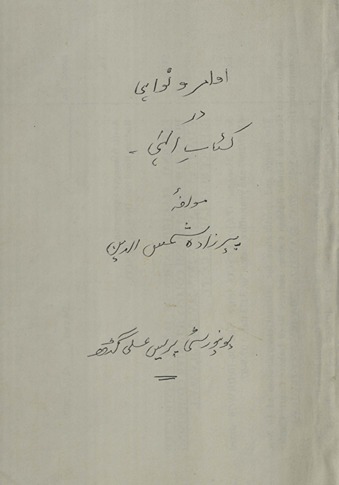 اوامر و نواہی
در
کتابِ الٰہی ۔
مولفۂ
پیرزادہ شمس الدین
یونیورسٹی پریس علی گڑھ